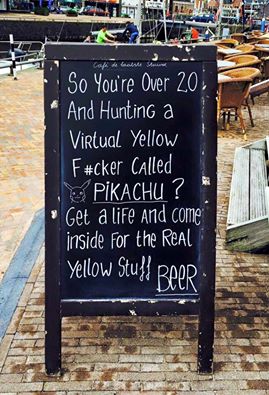 Café de laatste Stuiver
So You're Over 20
And Hunting a
Virtual Yellow
F#cker Called
PIKACHU?
Get a life And come
inside For the Real
Yellow Stuff
BEER